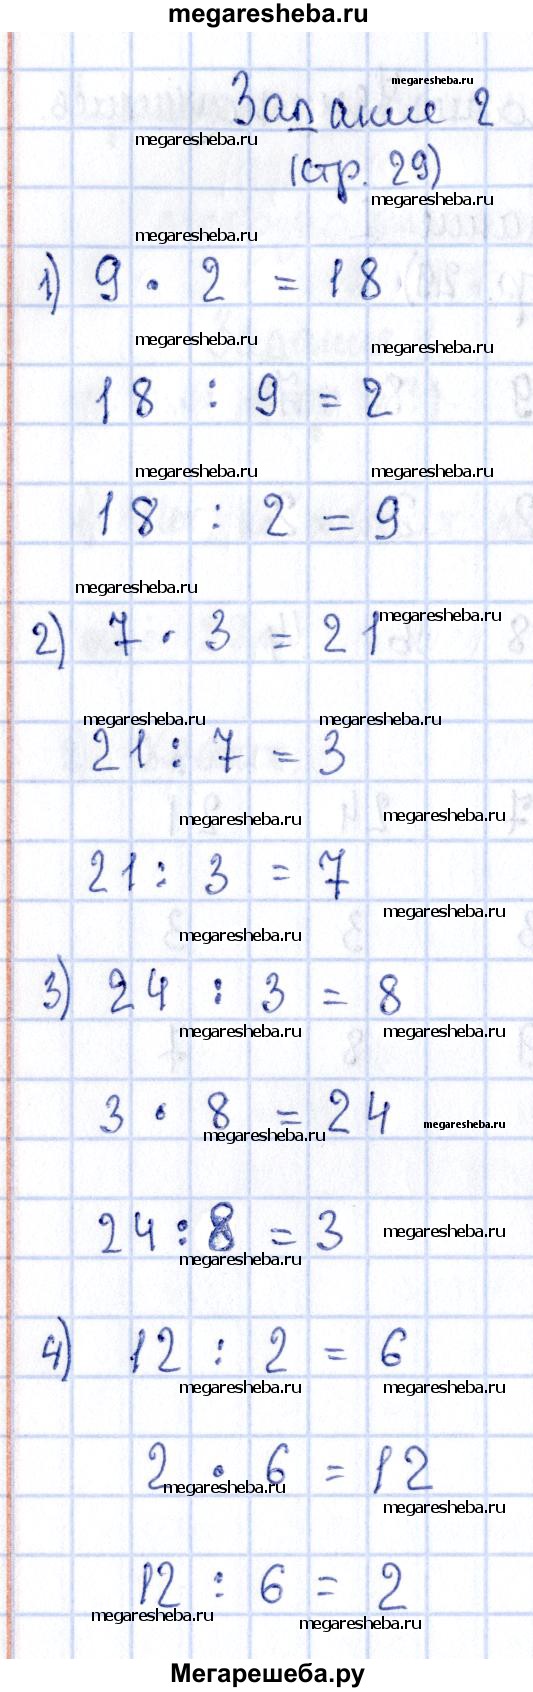 megaresheba.ru
megaresheba.ru
Задание 2
megaresheba.ru
(стр. 29)
megaresheba.ru
megaresheba.ru
1) 9 · 2 = 18
megaresheba.ru megaresheba.ru
18 : 9 = 2
megaresheba.ru megaresheba.ru
18 : 2 = 9
megaresheba.ru
megaresheba.ru
2) 7 · 3 = 21
megaresheba.ru megaresheba.ru
21 : 7 = 3
megaresheba.ru megaresheba.ru
21 : 3 = 7
megaresheba.ru
megaresheba.ru
3) 24 : 3 = 8
megaresheba.ru megaresheba.ru
3 · 8 = 24
megaresheba.ru
megaresheba.ru
24 : 8 = 3
megaresheba.ru
megaresheba.ru
4) 12 : 2 = 6
megaresheba.ru megaresheba.ru
2 · 6 = 12
megaresheba.ru
megaresheba.ru
12 : 6 = 2
megaresheba.ru
megaresheba.ru
Мегарешеба.ру